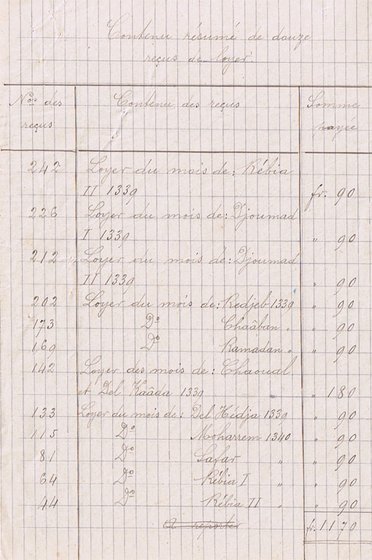 Contenu résumé de douze
reçus de loyer.
Nos des reçus Contenu des reçus Somme payée
242 Loyer du mois de: Rébia
II 1339 fr. 90
226 Loyer du mois de: Djoumad
I 1339 " 90
212 Loyer du mois de: Djoumad
II 1339 " 90
202 Loyer du mois de: Redjeb 1339 " 90
173 Do Chaâban " " 90
169 Do Ramadan " " 90
142 Loyer des mois de: Chaoual
et Del Kaâda 1339 " 180
133 Loyer du mois de: Del Hédja 1339 " 90
115 Do Moharrem 1340 " 90
81 Do Safar " " 90
64 Do Rébia I " " 90
44 Do Rébia II " " 90
A reporter fr. 1170